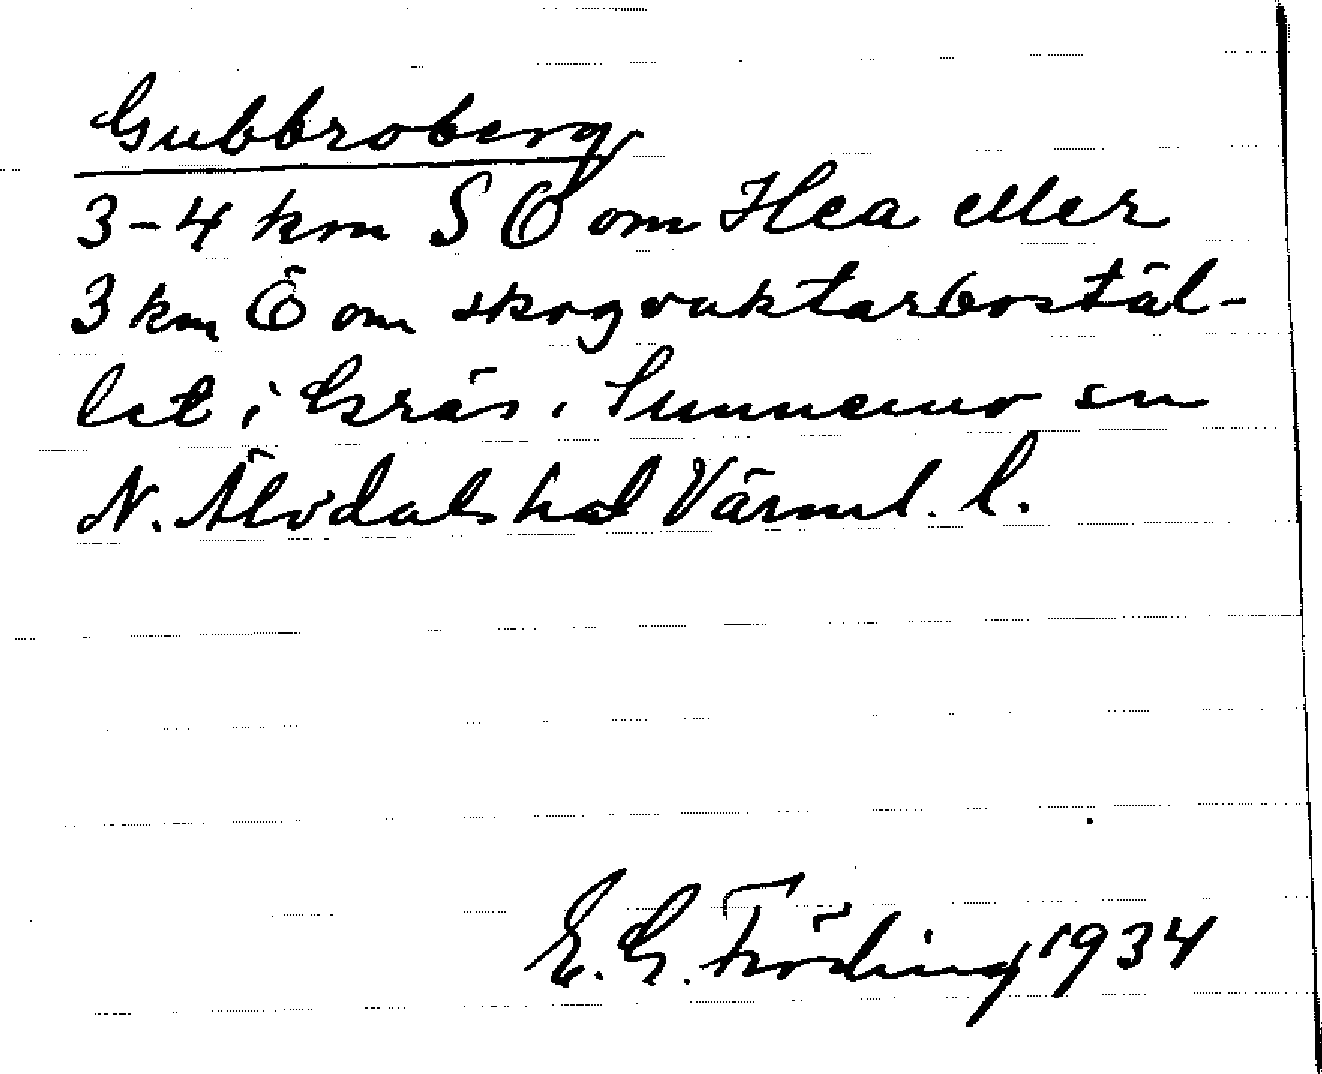 Gubbroberg
3-4 km S Ö om Hea eller
3 km Ö om skogvaktarbostäl-
let i Gräs. Sunnemo sn
N. Älvdals hd Värml. l.
E. G. Fröding 1934